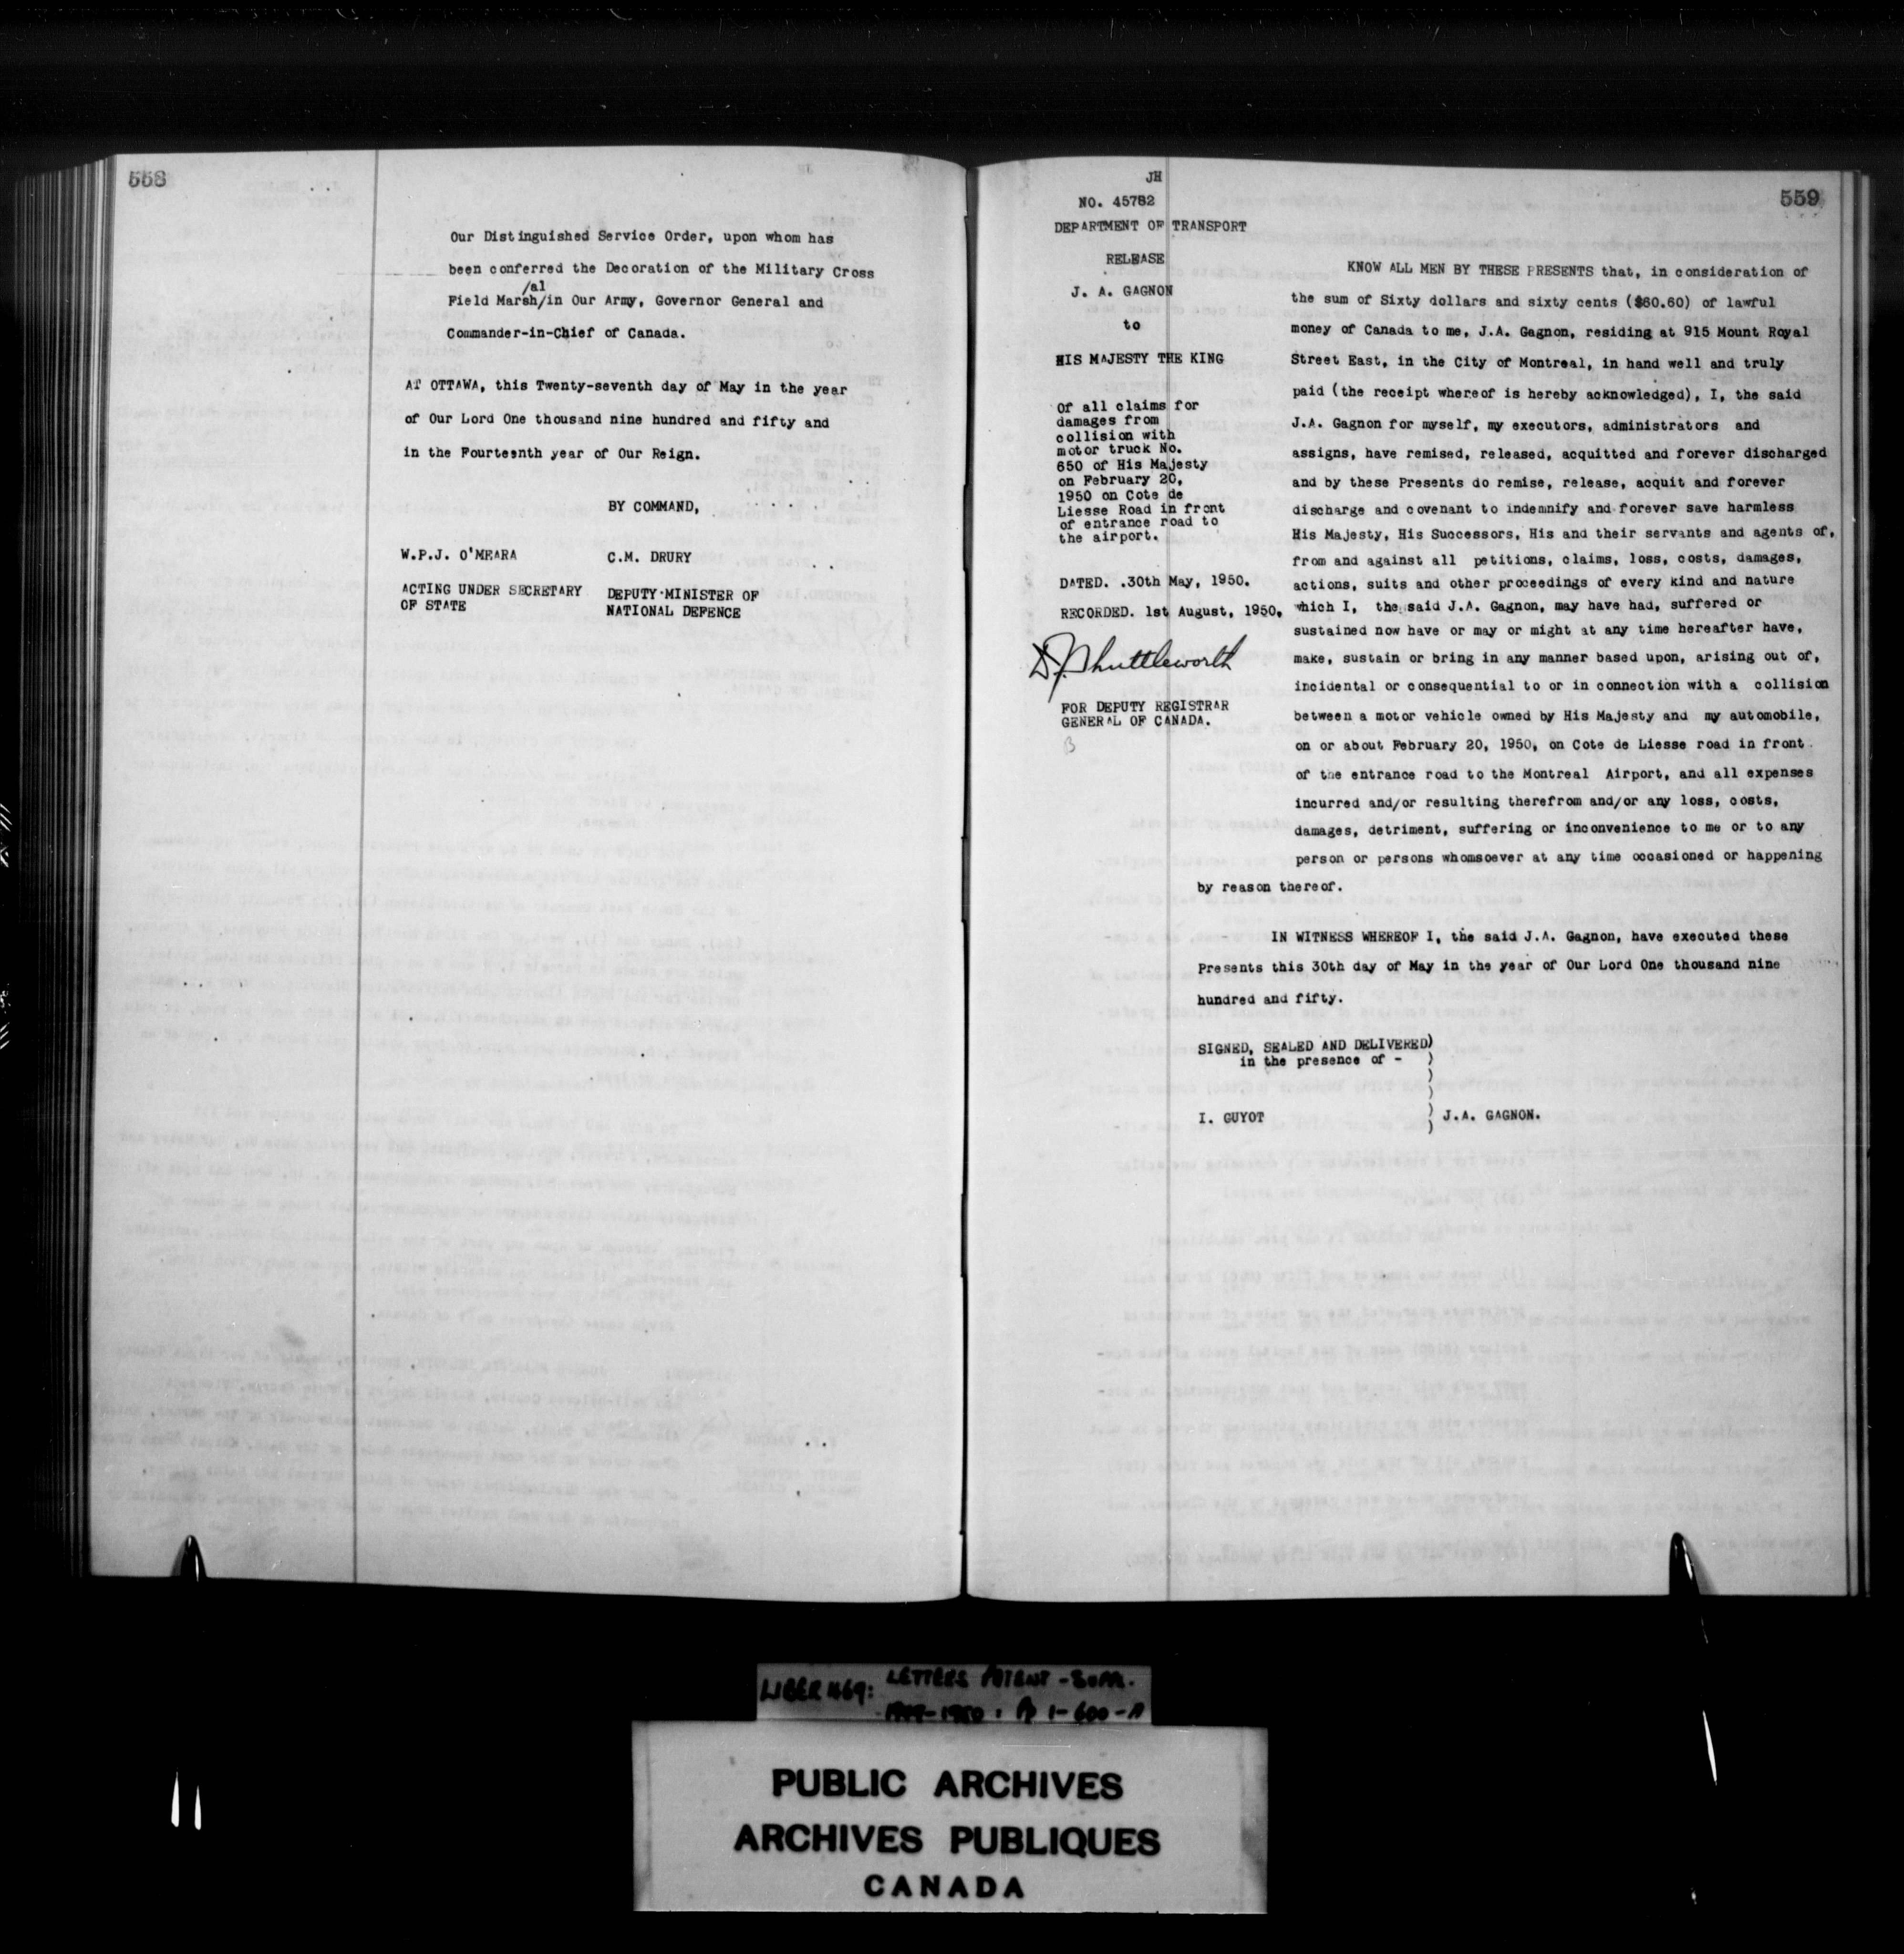 558
Our Distinguished Service Order, upon whom has
been conferred the Decoration of the Military Cross
/al
Field Marsh/in Our Army, Governor General and
Commander-in-Chief of Canada.
AT OTTAWA, this Twenty-seventh day of May in the year
of Our Lord One thousand nine hundred and fifty and
in the Fourteenth year of Our Reign.
BY COMMAND,
W.P.J. O'MEARA
C.M. DRURY
ACTING UNDER SECRETARY
OF STATE
DEPUTY MINISTER OF
NATIONAL DEFENCE
559
JH
NO. 45782
DEPARTMENT OF TRANSPORT
RELEASE
J. A. GAGNON
to
HIS MAJESTY THE KING
Of all claims for
damages from
collision with
motor truck No.
650 of His Majesty
on February 20,
1950 on Cote de
Liesse Road in front
of entrance road to
the airport.
DATED. .30th May, 1950.
RECORDED. 1st August, 1950,
D.J. Shuttleworth
FOR DEPUTY REGISTRAR
GENERAL OF CANADA.
B
KNOW ALL MEN BY THESE PRESENTS that, in consideration of
the sum of Sixty dollars and sixty cents ($60.60) of lawful
money of Canada to me, J.A. Gagnon, residing at 915 Mount Royal
Street East, in the City of Montreal, in hand well and truly
paid (the receipt whereof is hereby acknowledged), I, the said
J.A. Gagnon for myself, my executors, administrators and
assigns, have remised, released, acquitted and forever discharged
and by these Presents do remise, release, acquit and forever
discharge and covenant to indemnify and forever save harmless
His Majesty, His Successors, His and their servants and agents of,
from and against all petitions, claims, loss, costs, damages,
actions, suits and other proceedings of every kind and nature
which I, the said J.A. Gagnon, may have had, suffered or
sustained now have or may or might at any time hereafter have,
make, sustain or bring in any manner based upon, arising out of,
incidental or consequential to or in connection with a collision
between a motor vehicle owned by His Majesty and my automobile,
on or about February 20, 1950, on Cote de Liesse road in front
of the entrance road to the Montreal Airport, and all expenses
incurred and/or resulting therefrom and/or any loss, costs,
damages, detriment, suffering or inconvenience to me or to any
person or persons whomsoever at any time occasioned or happening
by reason thereof.
IN WITNESS WHEREOF I, the said J.A. Gagnon, have executed these
Presents this 30th day of May in the year of Our Lord One thousand nine
hundred and fifty.
SIGNED, SEALED AND DELIVERED)
in the presence of - )
)
)
)
I. GUYOT ) J.A. GAGNON.
)
LIBER 469: LETTERS PATENT -
1949-1950 : 1-600-A
PUBLIC ARCHIVES
ARCHIVES PUBLIQUES
CANADA